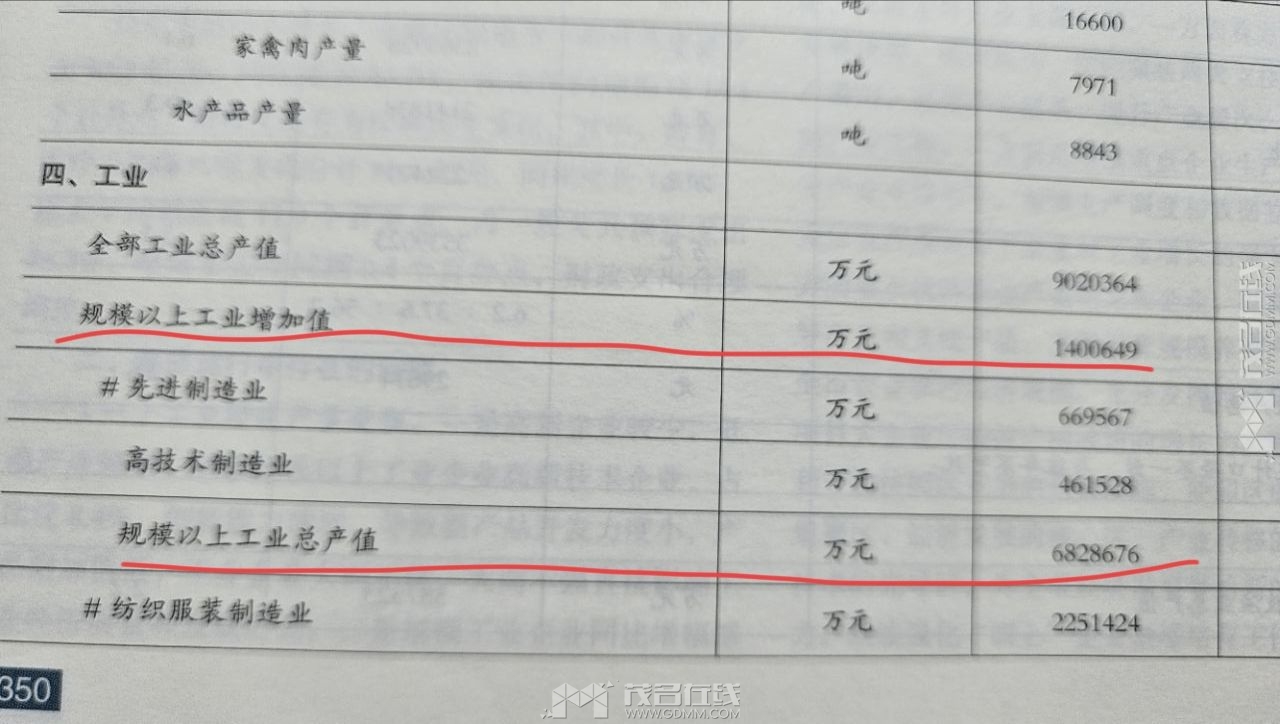 吨 16600
家禽肉产量 吨 7971
水产品产量 吨 8843
四、工业
全部工业总产值 万元 9020364
规模以上工业增加值 万元 1400649
#先进制造业 万元 669567
高技术制造业 万元 461528
规模以上工业总产值 万元 6828676
#纺织服装制造业 万元 2251424
350
茂名在线
WWW.GDMM.COM
茂名在线
WWW.GDMM.COM